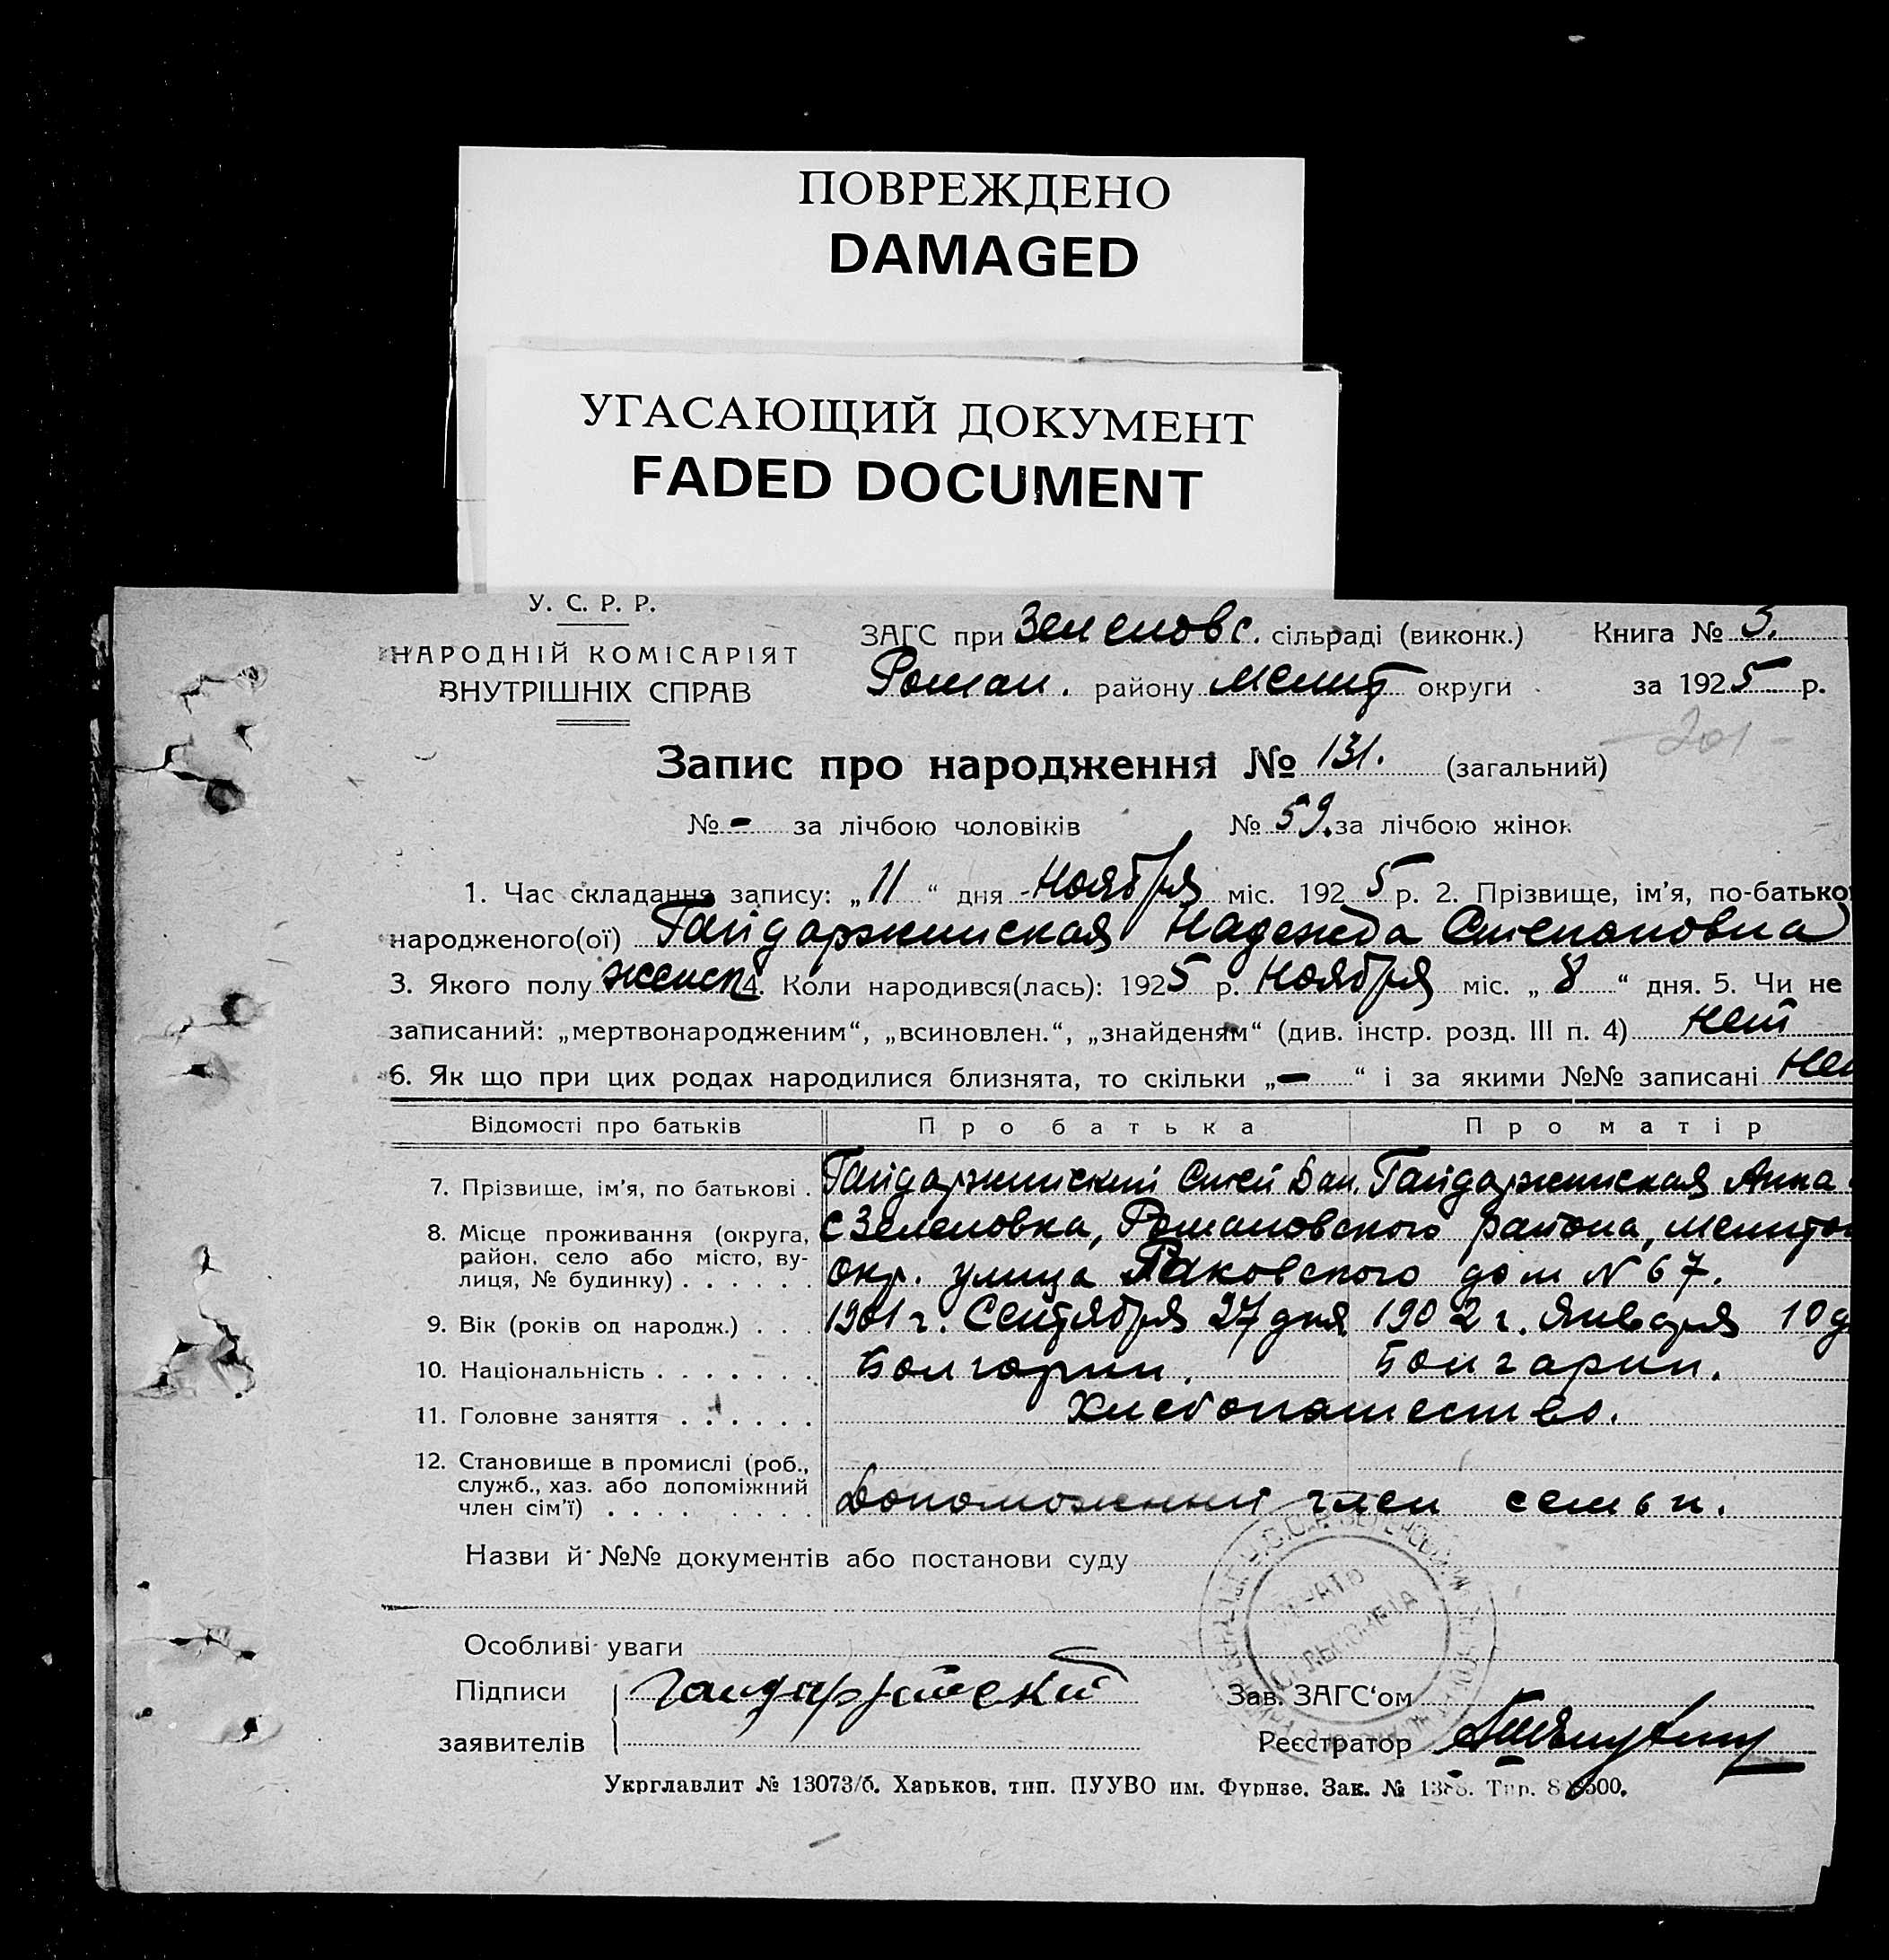 ПОВРЕЖДЕНО
DAMAGED
УГАСАЮЩИЙ ДОКУМЕНТ
FADED DOCUMENT
У. С. Р. Р.
НАРОДНІЙ КОМІСАРІЯТ
ВНУТРІШНІХ СПРАВ
ЗАГС при Зеленовс. сільраді (виконк.) Книга № 3.
Роман. району Мелит округи за 1925 р.
201
Запис про народження № 131. (загальний)
№ - за лічбою чоловіків № 59. за лічбою жінок
1. Час складання запису: „11“ дня Ноября міс. 1925 р. 2. Прізвище, ім'я, по-батько
народженого(ої) Гайдаржинская Надежда Степановна
3. Якого полу женск 4. Коли народився(лась): 1925 р. Ноября міс. „8“ дня. 5. Чи не
записаний: „мертвонародженим“, „всиновлен.“, „знайденям“ (див. інстр. розд. III п. 4) Нет
6. Як що при цих родах народилися близнята, то скільки „-“ і за якими №№ записані Нет
Відомості про батьків Про батька Про матір
7. Прізвище, ім'я, по батькові . Гайдаржинский Степ Дан. Гайдаржинская Анна
8. Місце проживання (округа, район, село або місто, ву-лиця, № будинку) . . . . . с Зеленовка, Романовского района, Мелито
окр. улица Раковского дом N 67.
9. Вік (років од народж.) . . . 1901 г. Сентября 27 дня 1902 г. Января 10 д
10. Національність . . . . . . . Болгарин. Болгарин.
11. Головне заняття . . . . . . Хлебопашество.
12. Становище в промислі (роб., служб., хаз. або допоміжний член сім'ї) . . . . . . . . . Допоможний член семьи.
Назви й №№ документів або постанови суду
Особливі уваги
Підписи Гайдаржинский Зав. ЗАГС‘ом
заявителів Реєстратор
Укрглавлит № 13073/б. Харьков, тип. ПУУВО им. Фрунзе. Зак. №